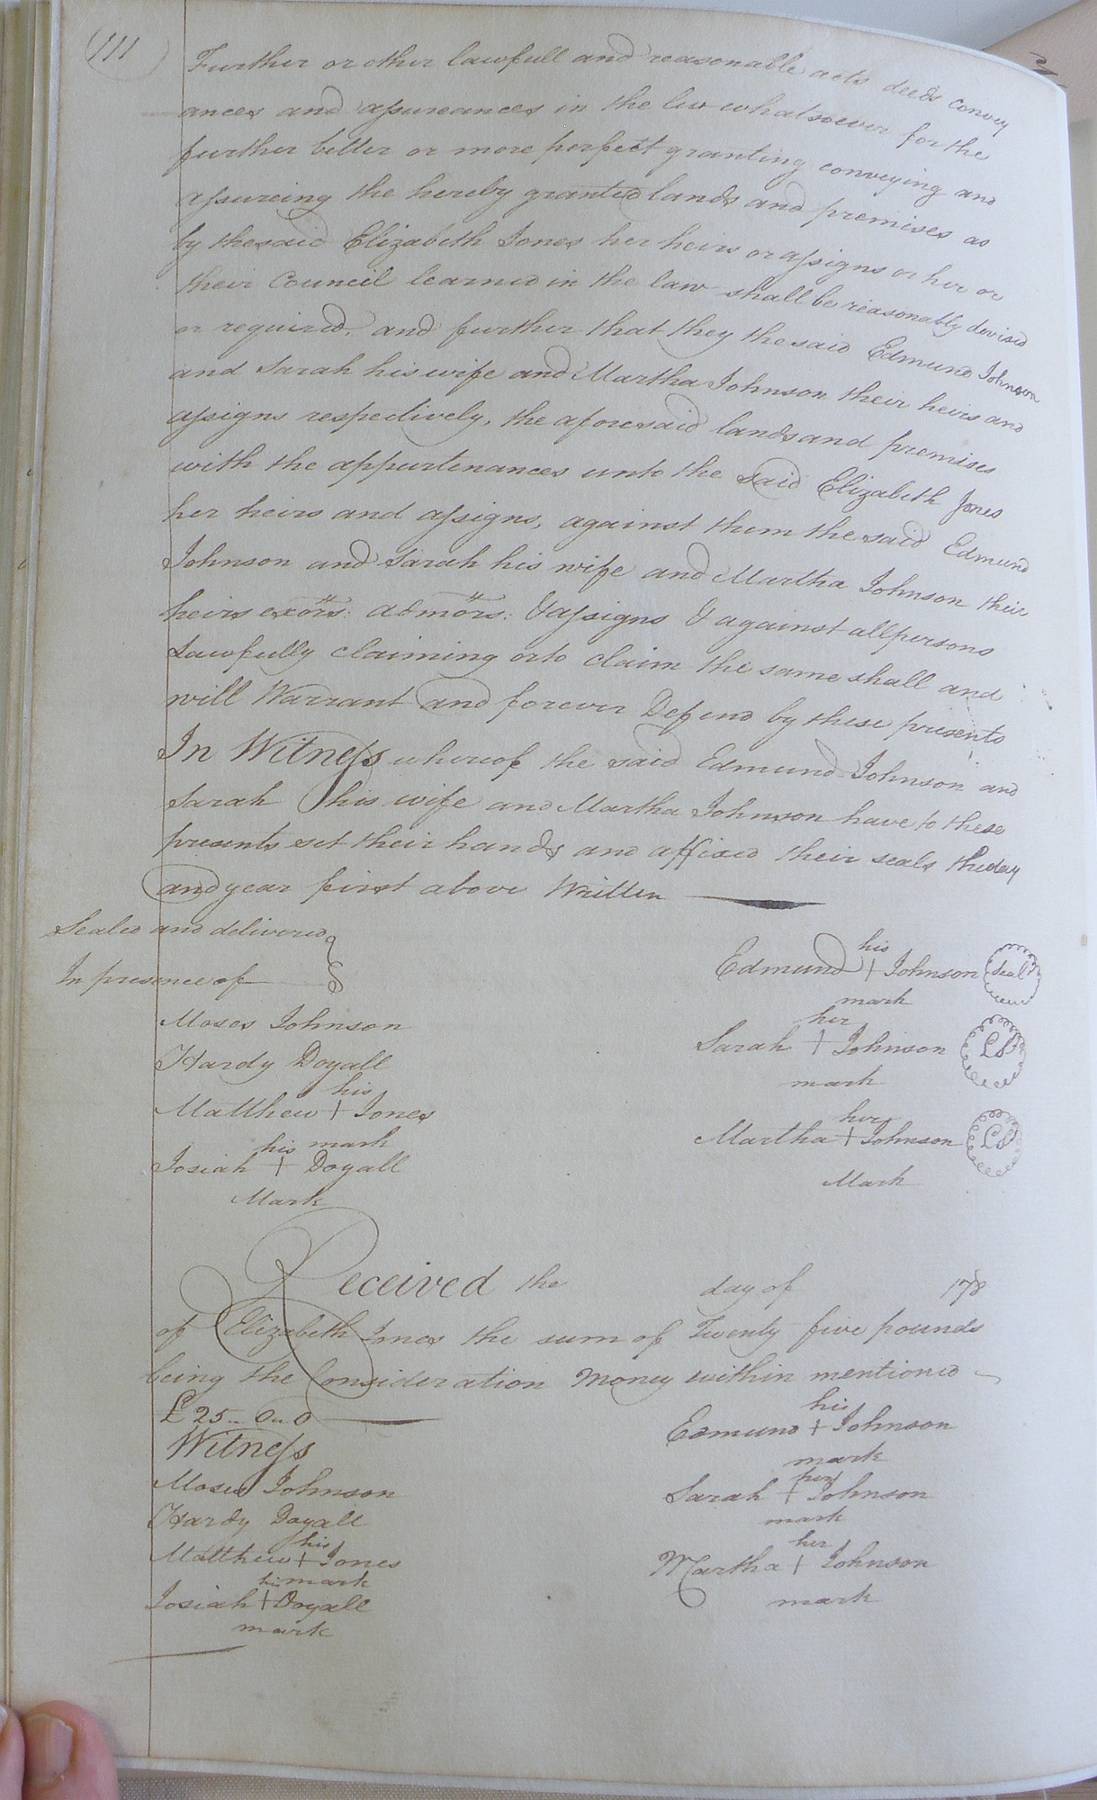 111
Further or other lawfull and reasonable acts deeds convey
ances and assureances in the law whatsoever for the
further better or more perfect granting conveying and
assureing the hereby granted lands and premises as
by the said Elizabeth Jones her heirs or assigns or her or
their Council learned in the law shall be reasonably devised
or required, and further that they the said Edmund Johnson
and Sarah his wife and Martha Johnson their heirs and
assigns respectively, the aforesaid lands and premises
with the appurtenances unto the said Elizabeth Jones
her heirs and assigns, against them the said Edmund
Johnson and Sarah his wife and Martha Johnson their
heirs exors: admors: & assigns & against all persons
Lawfully claiming or to claim the same shall and
will Warrant and forever Defend by these presents
In Witness whereof the said Edmund Johnson and
Sarah his wife and Martha Johnson have to these
presents set their hands and affixed their seals the day
and year first above Written
Sealed and delivered
In presence of
Moses Johnson
Hardy Doyall
his
Matthew + Jones
mark
his
Josiah + Doyall
Mark
his
Edmund + Johnson Seal
mark
her
Sarah + Johnson LS
mark
her
Martha + Johnson LS
Mark
Received the day of 178
of Elizabeth Jones the sum of Twenty five pounds
being the Consideration Money within mentioned
£25 .. 0 .. 0
Witness
Moses Johnson
Hardy Doyall
his
Matthew + Jones
mark
his
Josiah + Doyall
mark
his
Edmund + Johnson
mark
her
Sarah + Johnson
mark
her
Martha + Johnson
mark